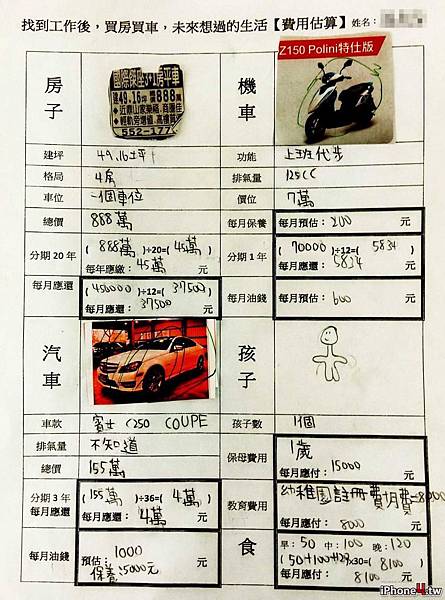 找到工作後，買房買車，未來想過的生活【費用估算】 姓名：
房子
國際傑座VIP房平車
建49.16坪 888萬
552-177
機車
Z150 Polini特仕版
建坪 49.16坪
功能 上班代步
格局 4房
排氣量 125CC
車位 一個車位
價位 7萬
總價 888萬
每月保養 每月預估：200 元
分期20年 (888萬)÷20=(45萬)
每年應繳：45萬 元
分期1年 (70000)÷12=(5834)
每月應還：5834 元
每月應還 (450000)÷12=(37500)
每月應還：37500 元
每月油錢 每月預估：600 元
汽車
孩子
車款 賓士 C250 COUPE
孩子數 1個
排氣量 不知道
保母費用 1歲
每月應付：15000 元
總價 155萬
分期3年
每月應還 (155萬)÷36=(4萬)
每月應還：4萬 元
教育費用 幼稚園註冊費月費=8000
每月應付：8000 元
每月油錢 預估：1000 元
保養：5000元
食 早：50 中：100 晚：120
(50+100+120)x30=(8100)
每月應付：8100 元
iPhone4.tw